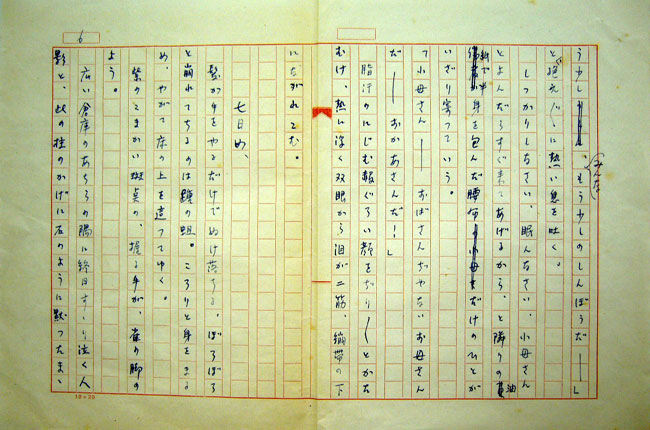 みんな
う少し、もう少しのしんぼうだ――」
と絶えだえに熱い息を吐く。
しっかりしなさい、眠んなさい、小母さん
とよんだらすぐ来てあげるから、と隣りの黄油
紙で半身を包んだ腰だけのひとが
いざり寄っていう。
小母さん―― おばさんぢゃないお母さん
だ―― おかあさんだ!」
脂汗のにじむ赧ぐろい顔をぢり〳〵とかた
むけ、熱に浮く双眼から泪が二筋、繃帯の下
にながれこむ。
七日め、
髪が手をやるだけでぬけ落ちる。ぼろぼろ
と崩れてちるのは膿の蛆。ころりと身をまる
め、やがて床の上を這ってゆく。
紫のこまかい斑点の、握る手が、雀の脚の
よう。
広い倉庫のあちらの隅に終日すゝり泣く人
影と、此の柱のかげに石のように黙ったまゝ
6